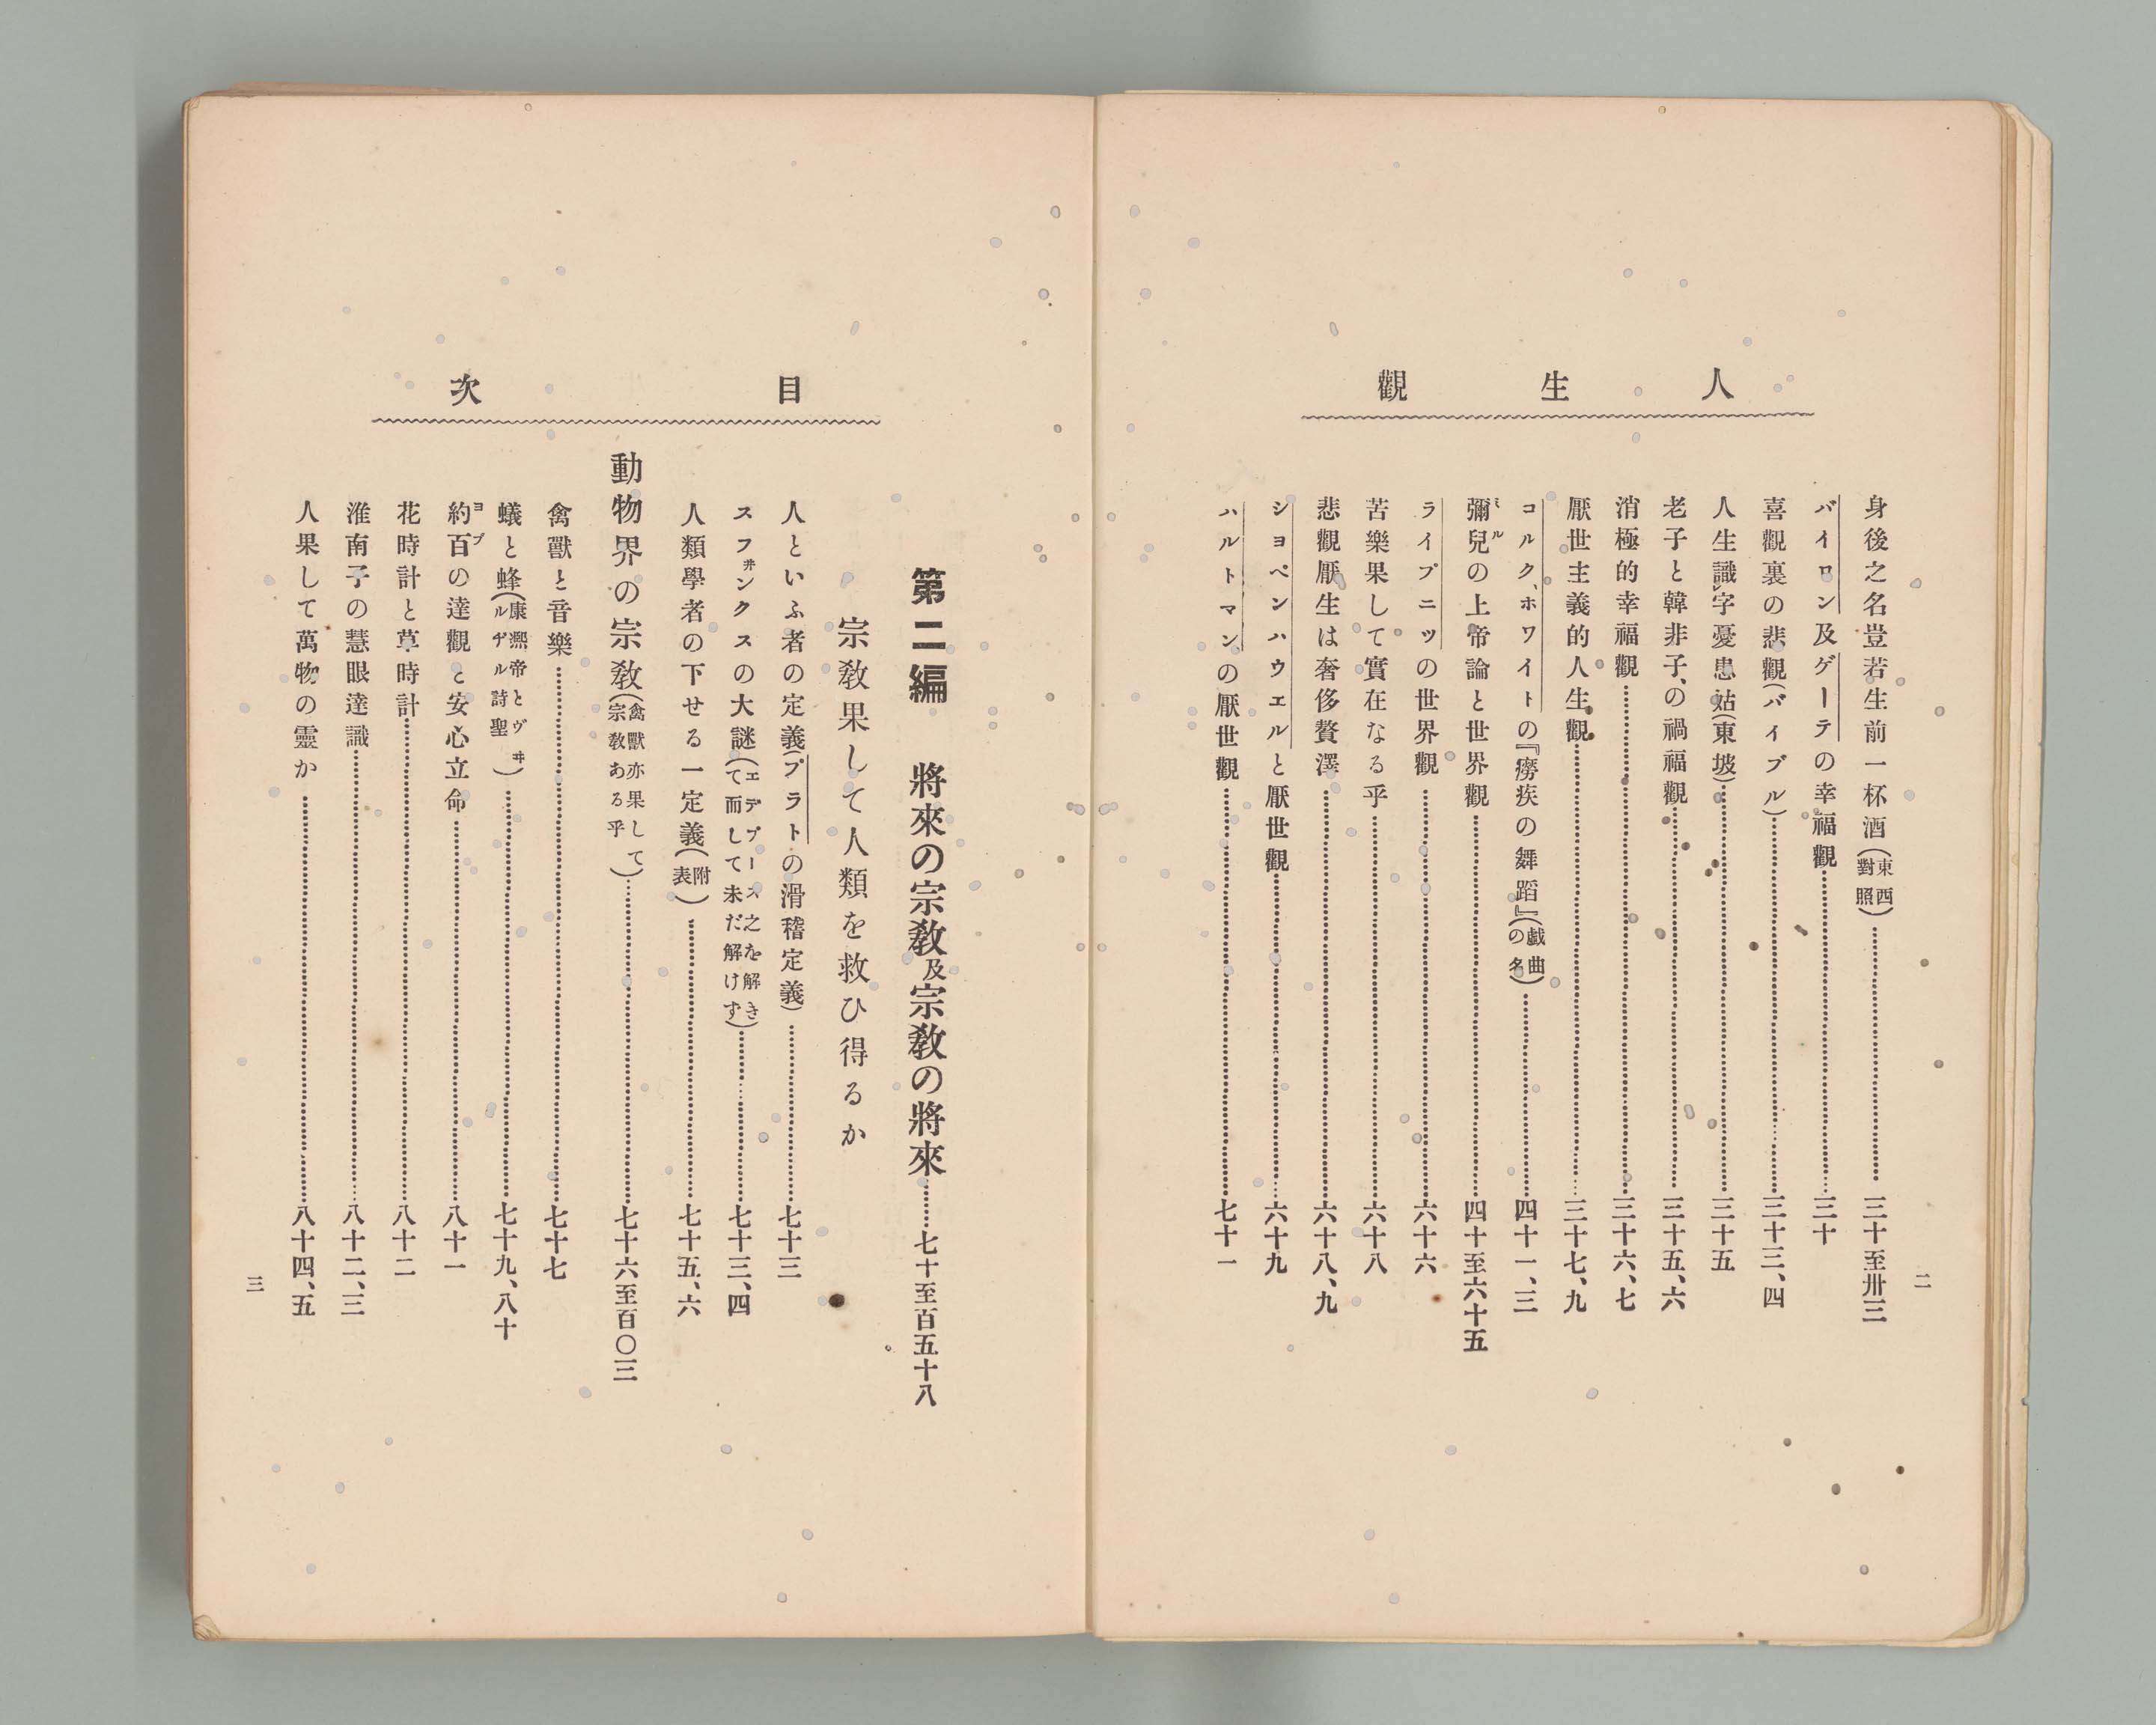 人生觀
二
身後之名豈若生前一杯酒(東西對照)………三十至卅三
バイロン及ゲーテの幸福觀………三十
喜觀裏の悲觀(バイブル)………三十三、四
人生識字憂患始(東坡)………三十五
老子と韓非子、の禍福觀………三十五、六
消極的幸福觀………三十六、七
厭世主義的人生觀………三十七、九
コルク、ホワイトの『癆疾の舞蹈』(戯曲の名)………四十一、三
彌兒の上帝論と世界觀………四十至六十五
ライプニッの世界觀………六十六
苦樂果して實在なる乎………六十八
悲觀厭生は奢侈贅澤………六十八、九
シヨペンハウエルと厭世觀………六十九
ハルトマン、の厭世觀………七十一
目次
第二編　將來の宗教及宗教の將來……七十至百五十八
宗教果して人類を救ひ得るか
人といふ者の定義(プラトの滑稽定義)………七十三
スフ井ンクスの大謎(エデプース之を解きて而して未だ解けず)………七十三、四
人類學者の下せる一定義(附表)………七十五、六
動物界の宗教(禽獸亦果して宗教ある乎)………七十六至百〇三
禽獸と音樂………七十七
蟻と蜂(康熙帝とヴヰルヂル詩聖)………七十九、八十
約百の達觀と安心立命………八十一
花時計と草時計………八十二
淮南子の慧眼達識………八十二、三
人果して萬物の靈か………八十四、五
三